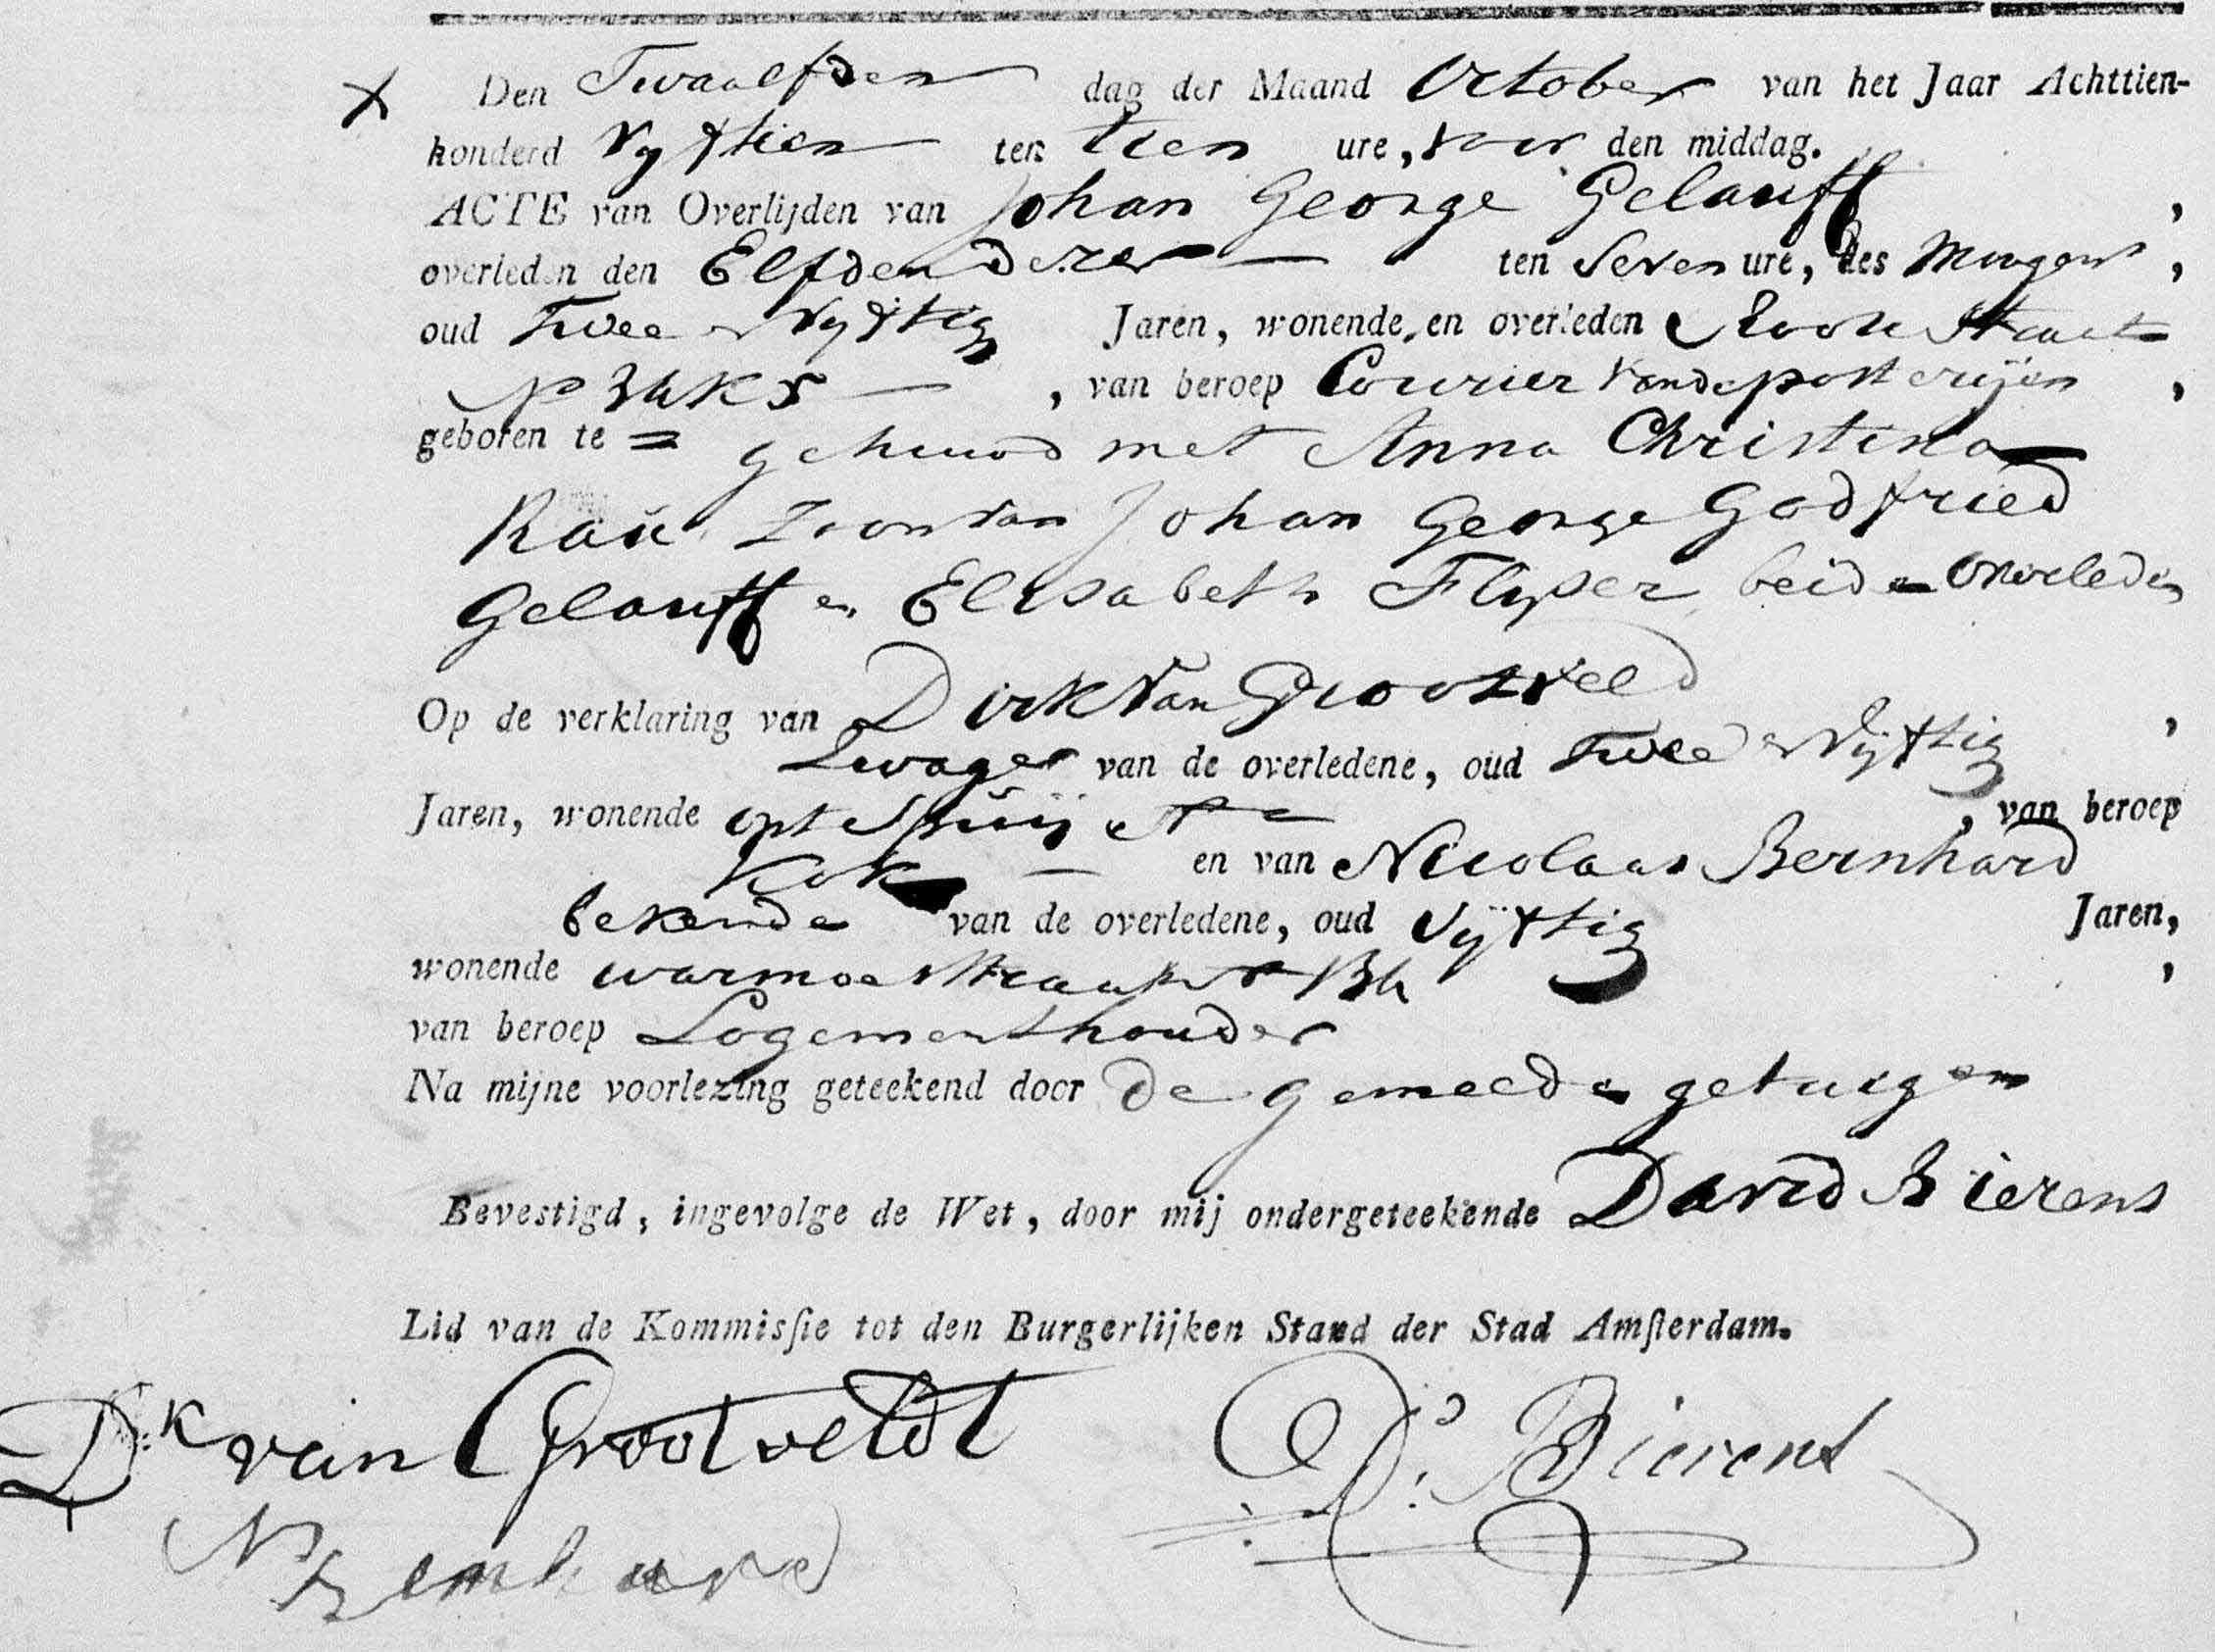 Den Twaalfden dag der Maand October van het Jaar Achttien-
honderd Vyftien ten tien ure, voor den middag.
ACTE van Overlijden van Johan George Gelauff,
overleden den Elfden dezer ten Seven ure, des Morgens,
oud Twee en Vyftig Jaren, wonende en overleden straat
, van beroep Courier van de posterijen,
geboren te = gehuwd met Anna Christina
Rau Zoon van Johan George Godfried
Gelauff en Elisabeth Flyser beide overleden
Op de verklaring van Dirk van Grootveld,
Swager van de overledene, oud Twee en Vijftig
Jaren, wonende op't Spuij, van beroep
Kok en van Nicolaas Bernhard
bekende van de overledene, oud Vijftig Jaren,
wonende warmoesstraat,
van beroep Logementhouder
Na mijne voorlezing geteekend door de gemeede getuigen
Bevestigd, ingevolge de Wet, door mij ondergeteekende David Bierens
Lid van de Kommisſie tot den Burgerlijken Stand der Stad Amſterdam.
Dk van Grootveldt
Ds Bierens
N Bernhard